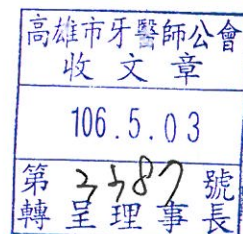 高雄市牙醫師公會
收文章
106.5.03
第 3387 號
轉呈理事長